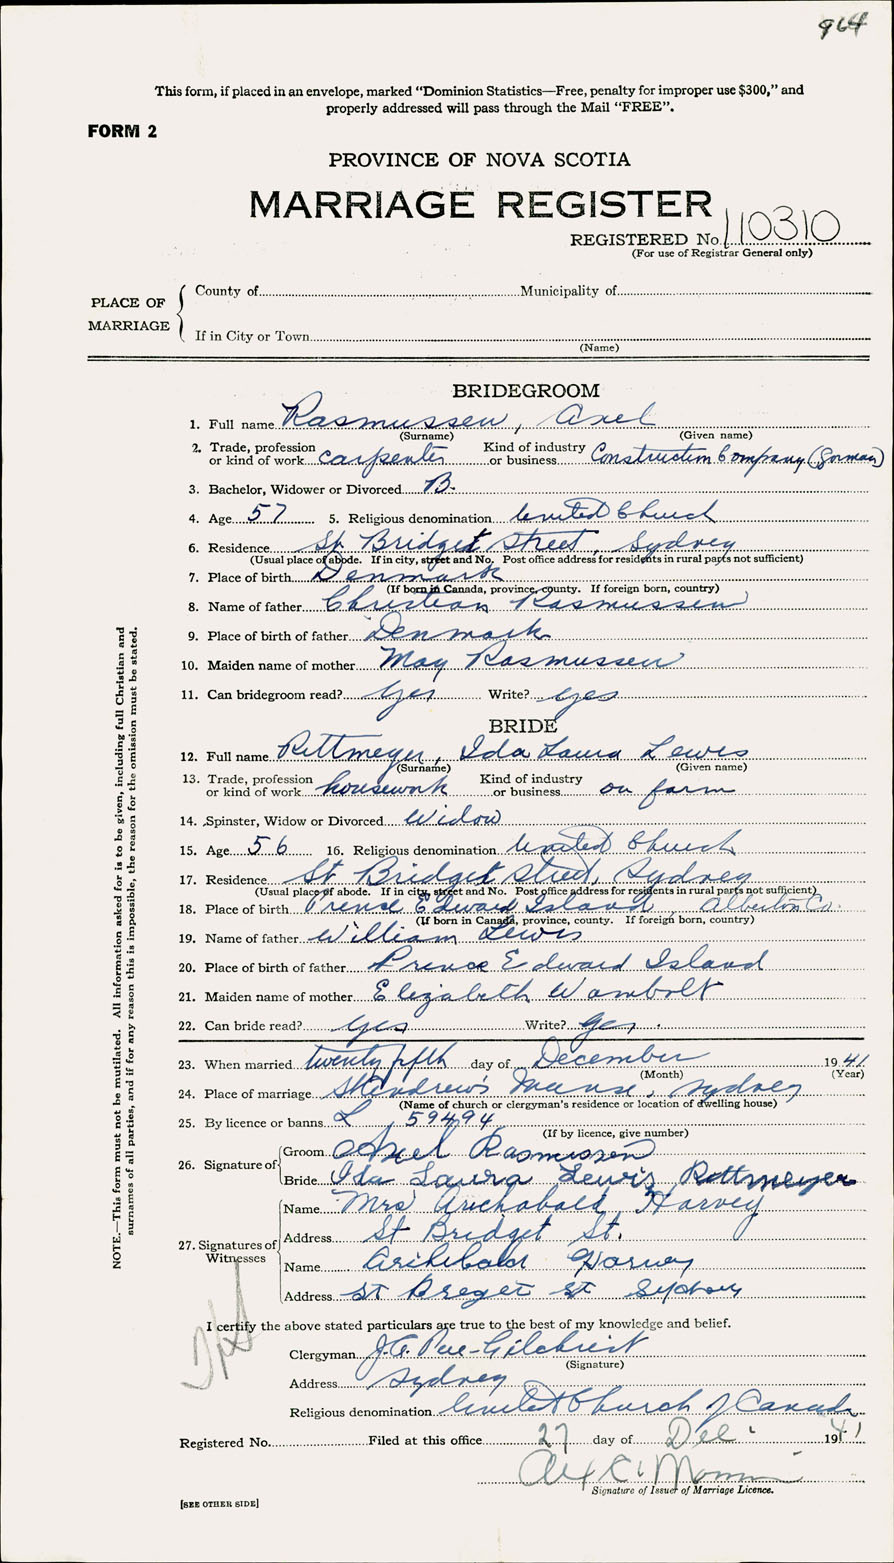 964
This form, if placed in an envelope, marked “Dominion Statistics—Free, penalty for improper use $300,” and
properly addressed will pass through the Mail “FREE”.
FORM 2
PROVINCE OF NOVA SCOTIA
MARRIAGE REGISTER
REGISTERED No. 110310
(For use of Registrar General only)
PLACE OF MARRIAGE
County of Municipality of
If in City or Town
(Name)
BRIDEGROOM
1. Full name Rasmussen, Axel
(Surname) (Given name)
2. Trade, profession or kind of work carpenter Kind of industry or business Construction Company (Gorman)
3. Bachelor, Widower or Divorced B.
4. Age 57 5. Religious denomination United Church
6. Residence St. Bridget Street, Sydney
(Usual place of abode. If in city, street and No. Post office address for residents in rural parts not sufficient)
7. Place of birth Denmark
(If born in Canada, province, county. If foreign born, country)
8. Name of father Christian Rasmussen
9. Place of birth of father Denmark
10. Maiden name of mother May Rasmussen
11. Can bridegroom read? yes Write? yes
BRIDE
12. Full name Rittmeyer, Ida Laura Lewis
(Surname) (Given name)
13. Trade, profession or kind of work housework Kind of industry or business on farm
14. Spinster, Widow or Divorced Widow
15. Age 56 16. Religious denomination United Church
17. Residence St. Bridget Street, Sydney
(Usual place of abode. If in city, street and No. Post office address for residents in rural parts not sufficient)
18. Place of birth Prince Edward Island, Alberton Co.
(If born in Canada, province, county. If foreign born, country)
19. Name of father William Lewis
20. Place of birth of father Prince Edward Island
21. Maiden name of mother Elizabeth Wambolt
22. Can bride read? yes Write? yes.
23. When married twenty fifth day of December 1941
(Month) (Year)
24. Place of marriage St Andrew's Manse, Sydney
(Name of church or clergyman's residence or location of dwelling house)
25. By licence or banns L, 59494
(If by licence, give number)
26. Signature of
Groom Axel Rasmussen
Bride Ida Laura Lewis Rittmeyer
27. Signatures of Witnesses
Name Mrs Archabald Harvey
Address St Bridget St.
Name Archibald Harvey
Address St Breget St Sydney
I certify the above stated particulars are true to the best of my knowledge and belief.
Clergyman J.A. Gilchrist
(Signature)
Address Sydney
Religious denomination United Church of Canada
Registered No. Filed at this office 27 day of Dec. 1941
Signature of Issuer of Marriage Licence.
[SEE OTHER SIDE]
NOTE.—This form must not be mutilated. All information asked for is to be given, including full Christian and
surnames of all parties, and if for any reason this is impossible, the reason for the omission must be stated.